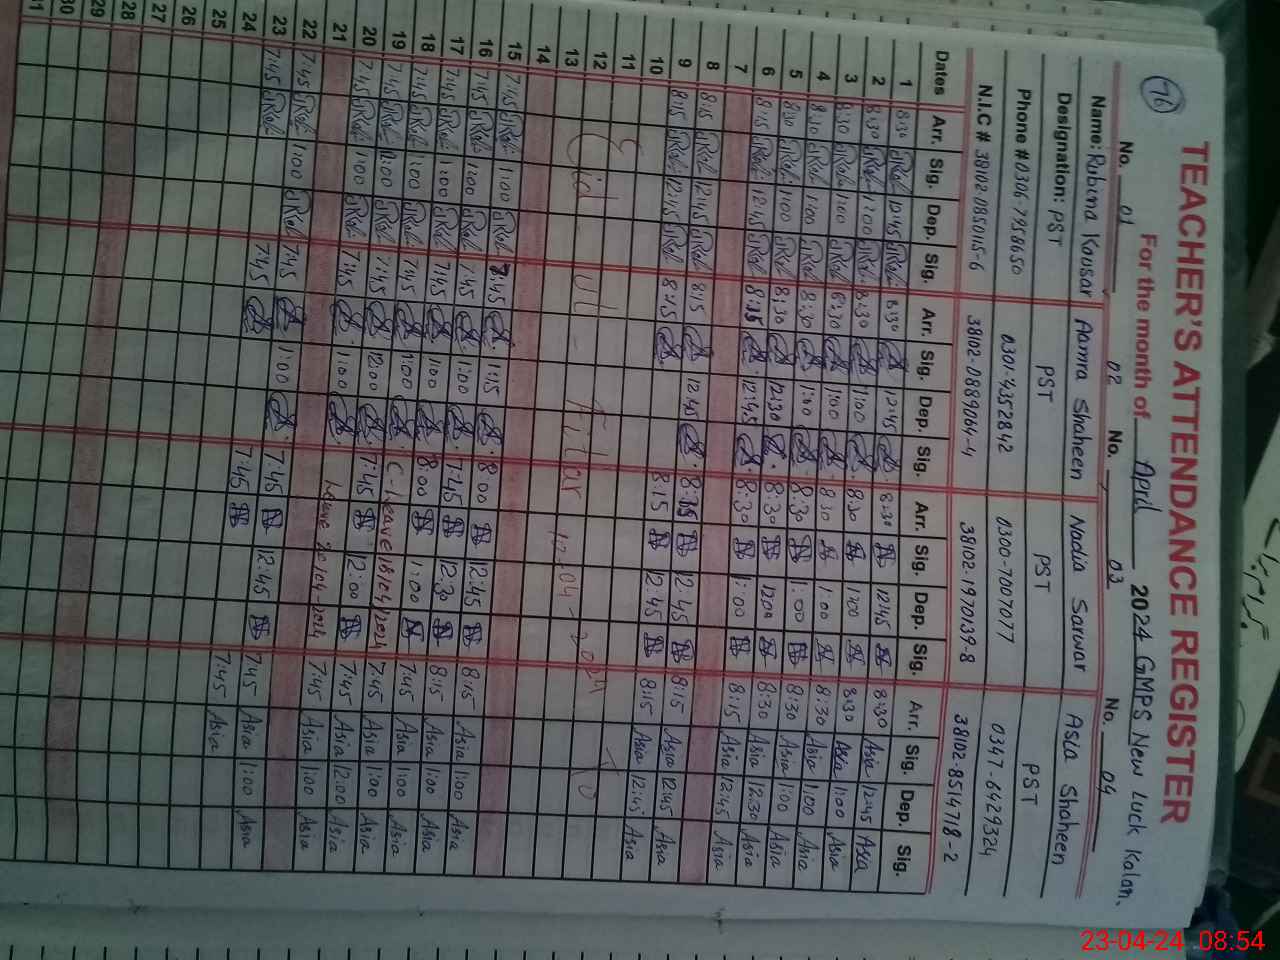 76
TEACHER'S ATTENDANCE REGISTER
For the month of April 2024 GMPS New Luck Kalan.
No. 01 No. 02 No. 03 No. 04
Name: Rubina Kousar Aamra Shaheen Nadia Sarwar Asia Shaheen
Designation: PST PST PST PST
Phone # 0306-7958650 0301-4352842 0300-7007077 0347-6429324
N.I.C # 38102-0850115-6 38102-0889064-4 38102-1970139-8 38102-8514718-2
Dates Arr. Sig. Dep. Sig. Arr. Sig. Dep. Sig. Arr. Sig. Dep. Sig. Arr. Sig. Dep. Sig.
1 8:30 12:45 8:30 12:45 8:30 12:45 8:30 Asia 12:45 Asia
2 8:30 1:00 8:30 1:00 8:30 1:00 8:30 Asia 1:00 Asia
3 8:30 1:00 8:30 1:00 8:30 1:00 8:30 Asia 1:00 Asia
4 8:30 1:00 8:30 1:00 8:30 1:00 8:30 Asia 1:00 Asia
5 8:30 1:00 8:30 12:30 8:30 1200 8:30 Asia 12:30 Asia
6 8:15 12:45 8:15 12:45 8:30 1:00 8:15 Asia 12:45 Asia
7
8 8:15 12:45 8:15 12:45 8:15 12:45 8:15 Asia 12:45 Asia
9 8:15 12:45 8:15 8:15 12:45 8:15 Asia 12:45 Asia
10
11
12 Eid ul - Fitar 12-04-2024 To
13
14
15 7:45 1:00 7:45 1:15 8:00 12:45 8:45 Asia 1:00 Asia
16 7:45 1:00 7:45 1:00 7:45 12:30 8:15 Asia 1:00 Asia
17 7:45 1:00 7:45 1:00 8:00 1:00 7:45 Asia 1:00 Asia
18 7:45 1:00 7:45 1:00 C-Leave 18/04/2024 7:45 Asia 1:00 Asia
19 7:45 12:00 7:45 12:00 7:45 12:00 7:45 Asia 12:00 Asia
20 7:45 1:00 7:45 1:00 Leave 20/04-2024 7:45 Asia 1:00 Asia
21
22 7:45 1:00 7:45 1:00 7:45 12:45 7:45 Asia 1:00 Asia
23 7:45 7:45 7:45 7:45 Asia
24
25
26
27
28
29
30
31
23-04-24 08:54